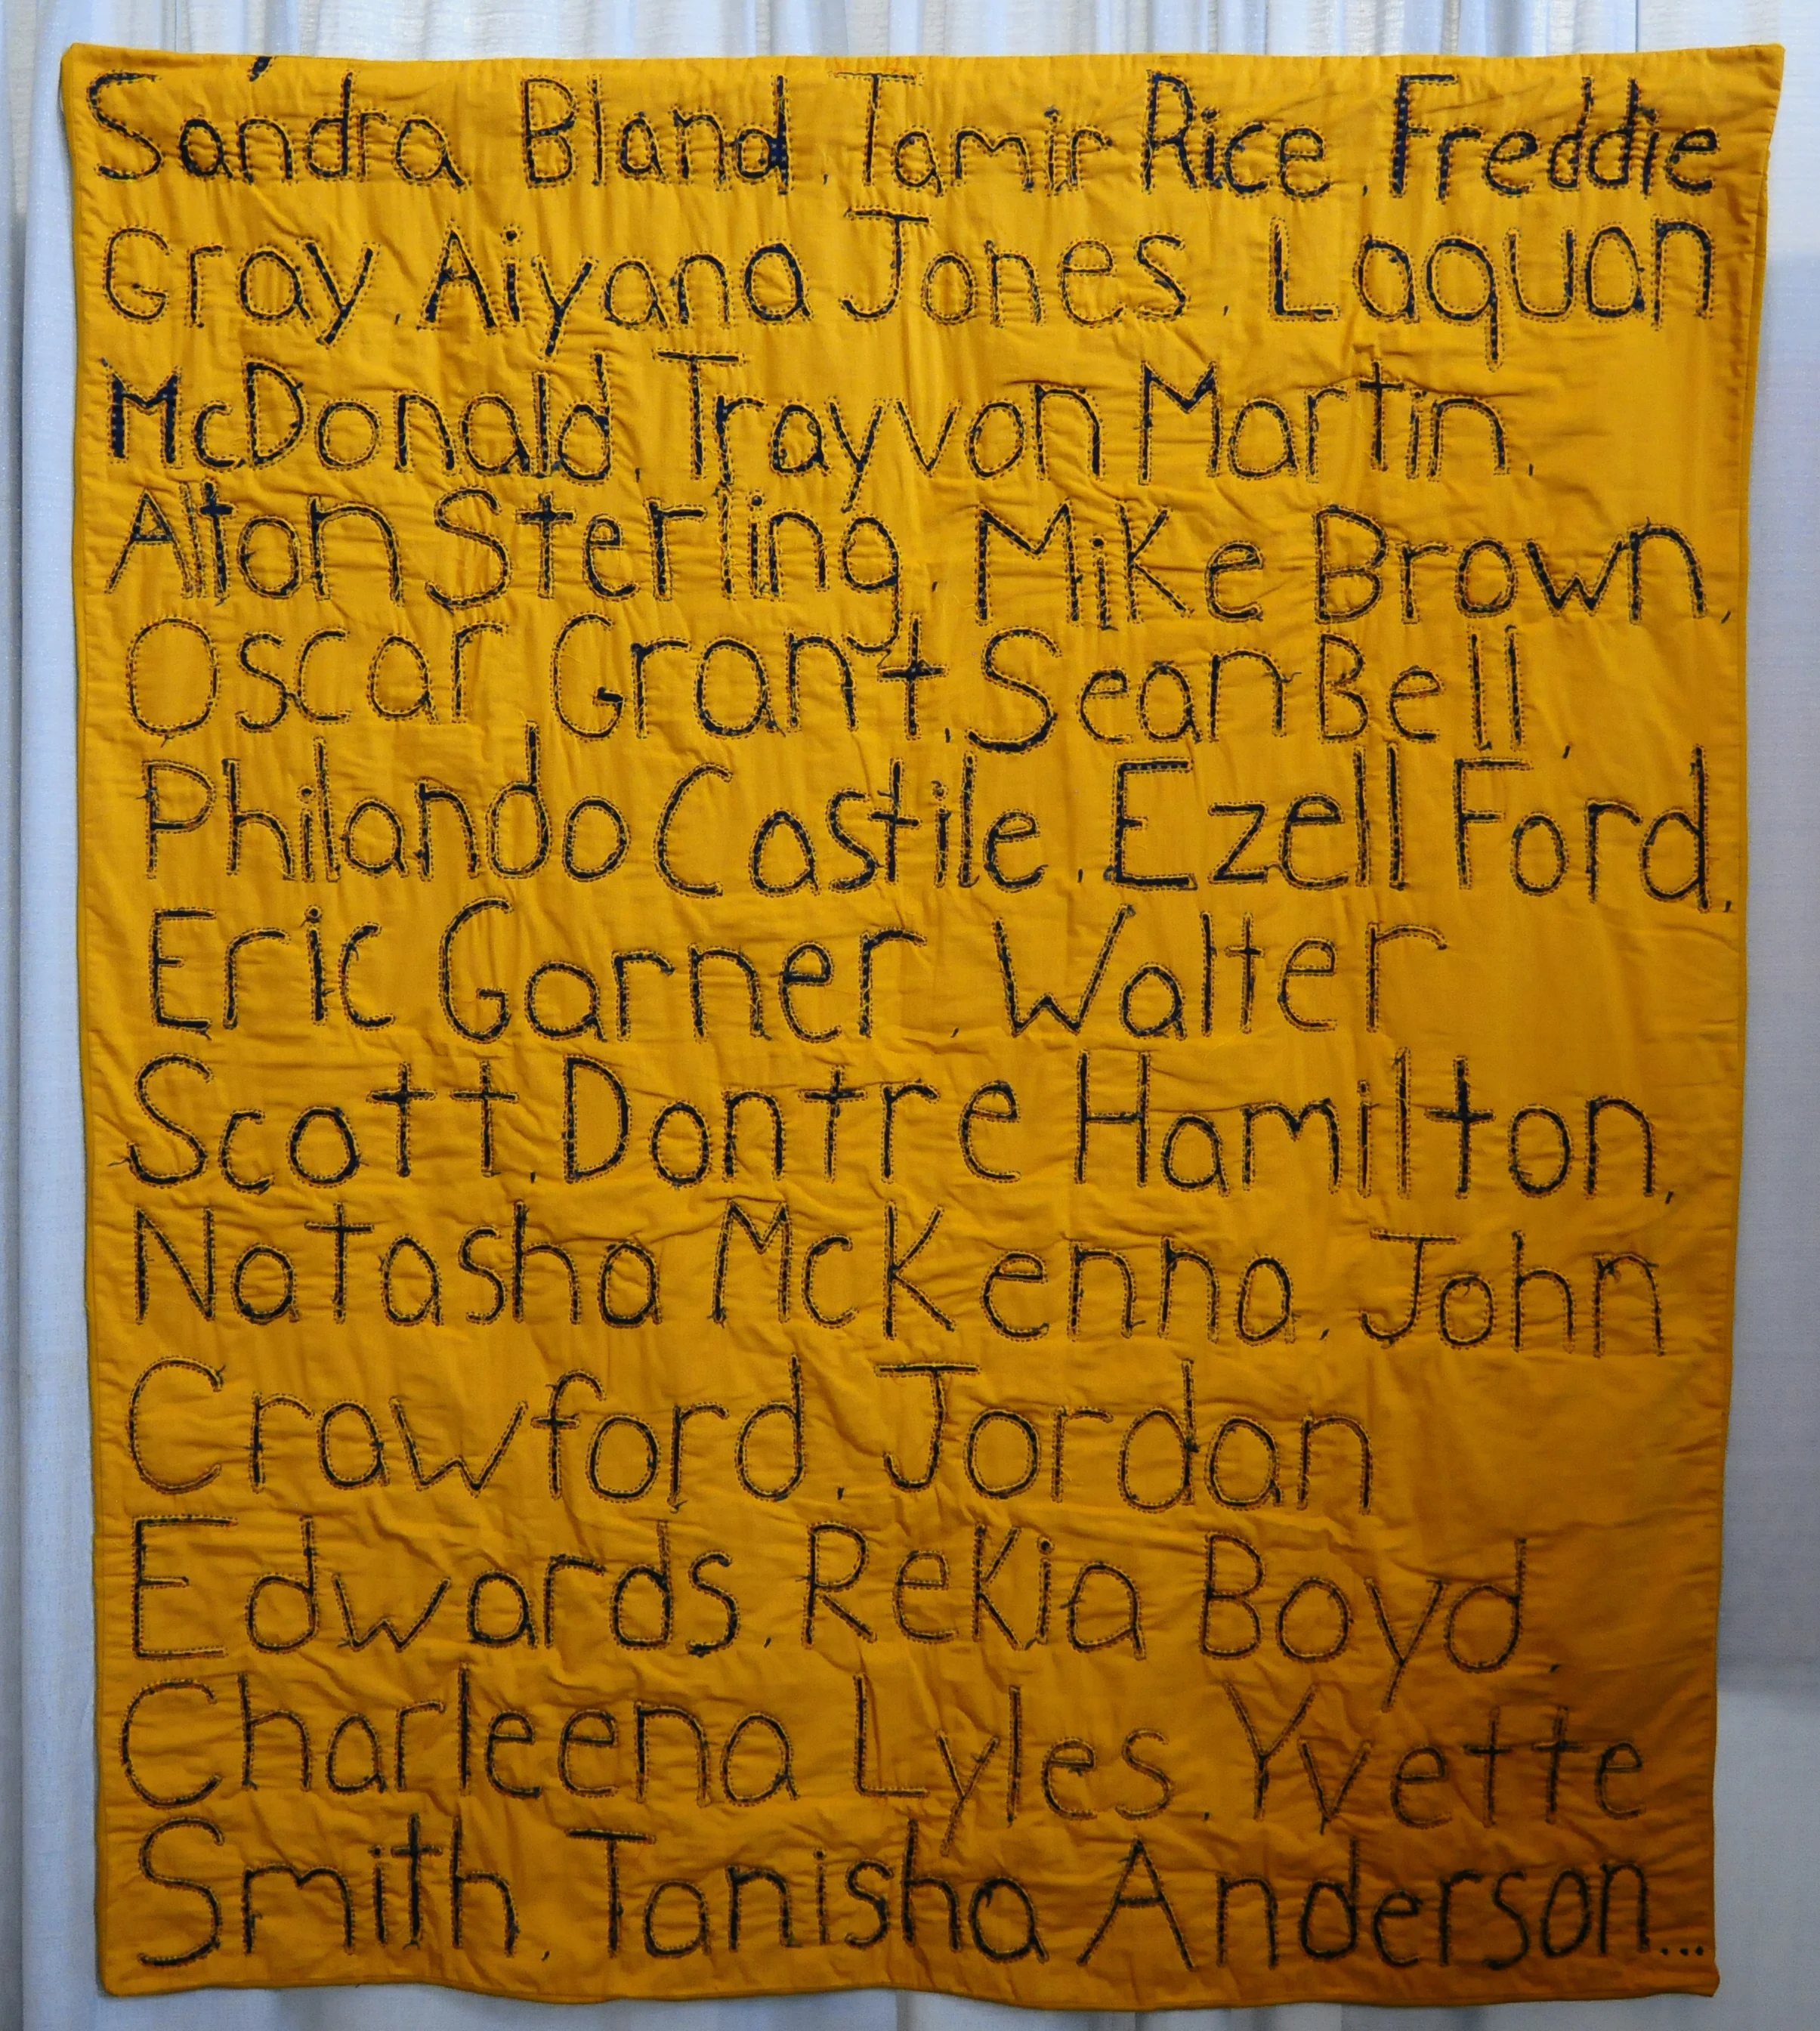 Sandra Bland, Tamir Rice, Freddie
Gray, Aiyana Jones, Laquan
McDonald, Trayvon Martin,
Alton Sterling, Mike Brown,
Oscar Grant, Sean Bell,
Philando Castile, Ezell Ford,
Eric Garner, Walter
Scott, Dontre Hamilton,
Natasha McKenna, John
Crawford, Jordan
Edwards, Rekia Boyd,
Charleena Lyles, Yvette
Smith, Tanisha Anderson...